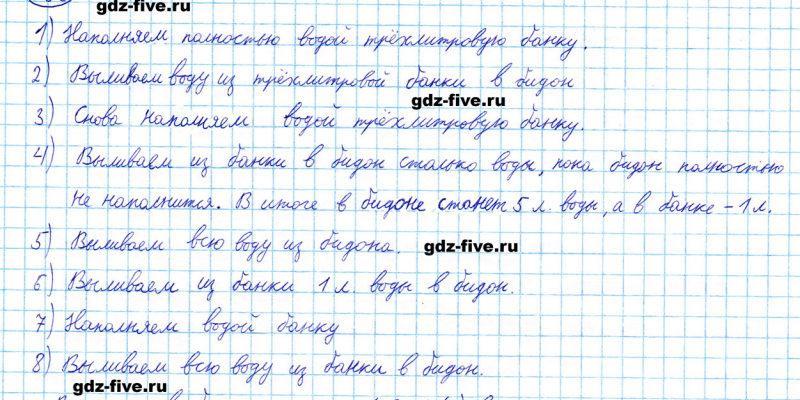 gdz-five.ru
1) Наполняем полностью водой трёхлитровую банку.
2) Выливаем воду из трёхлитровой банки в бидон
gdz-five.ru
3) Снова наполняем водой трёхлитровую банку.
4) Выливаем из банки в бидон столько воды, пока бидон полностью
не наполнится. В итоге в бидоне станет 5 л. воды, а в банке - 1 л.
5) Выливаем всю воду из бидона. gdz-five.ru
6) Выливаем из банки 1 л. воды в бидон.
7) Наполняем водой банку
8) Выливаем всю воду из банки в бидон.
gdz-five.ru